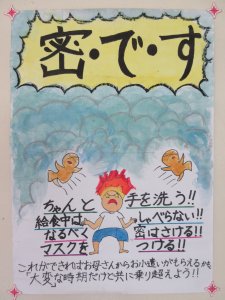 密・で・す
ちゃんと 手を洗う!!
給食中は しゃべらない!!
なるべく 密はさける!!
マスクを つける!!
これができればお母さんからお小遣いがもらえるかも
大変な時期だけど共に乗り越えよう!!